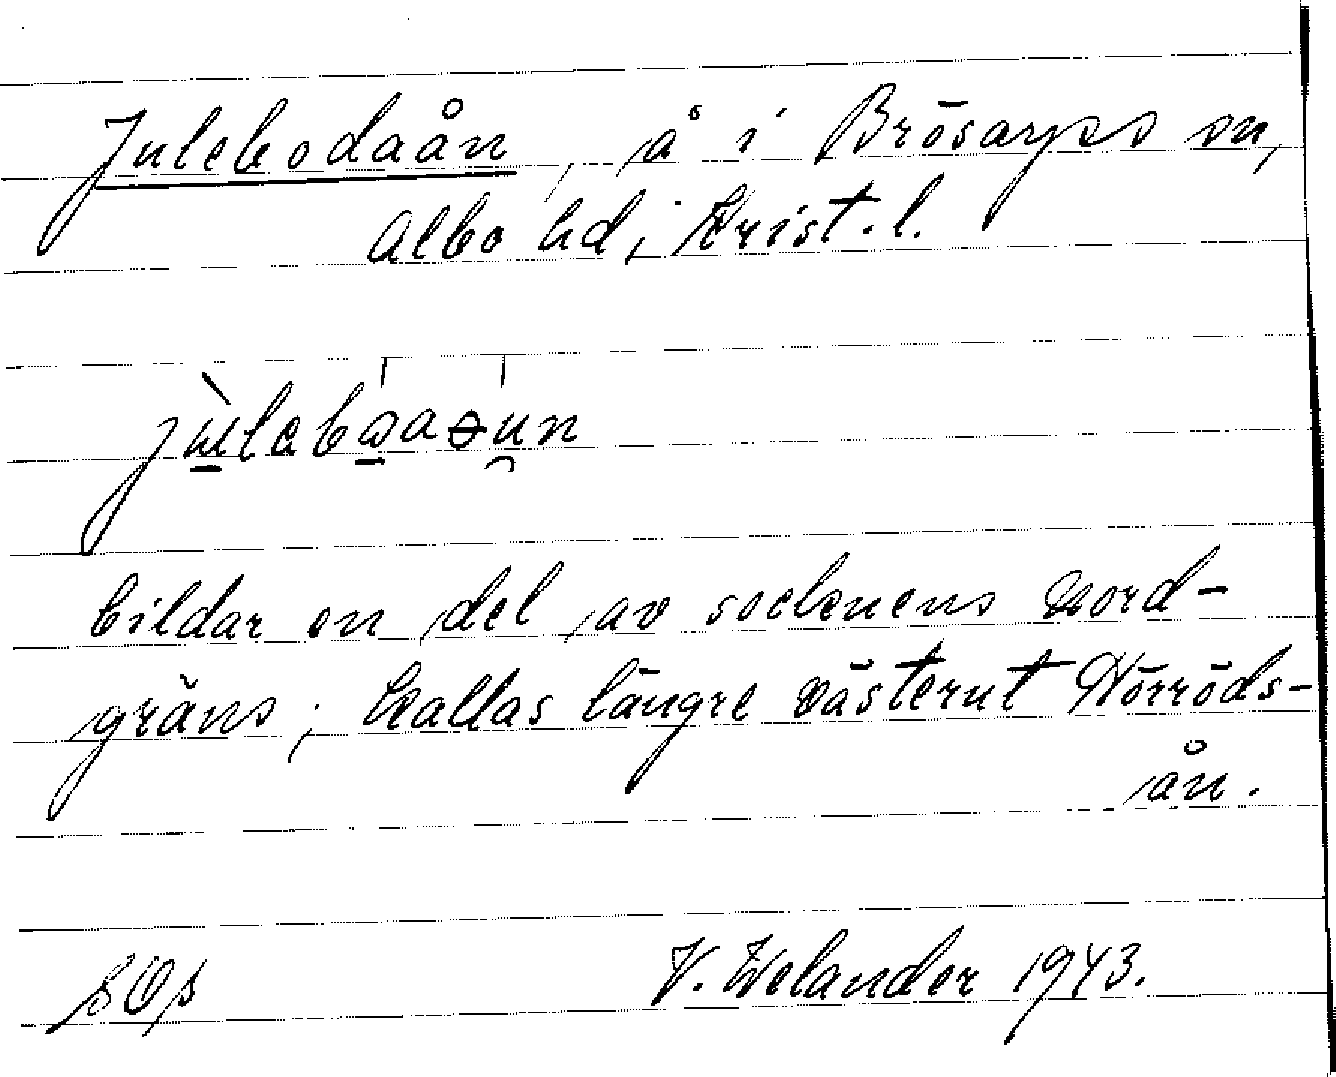 Julebodaån, å i Brösarps sn,
Albo hd, Krist. l.
bildar en del av socknens nord-
gräns; kallas längre västerut Nörröds-
ån.
V. Welander 1943.